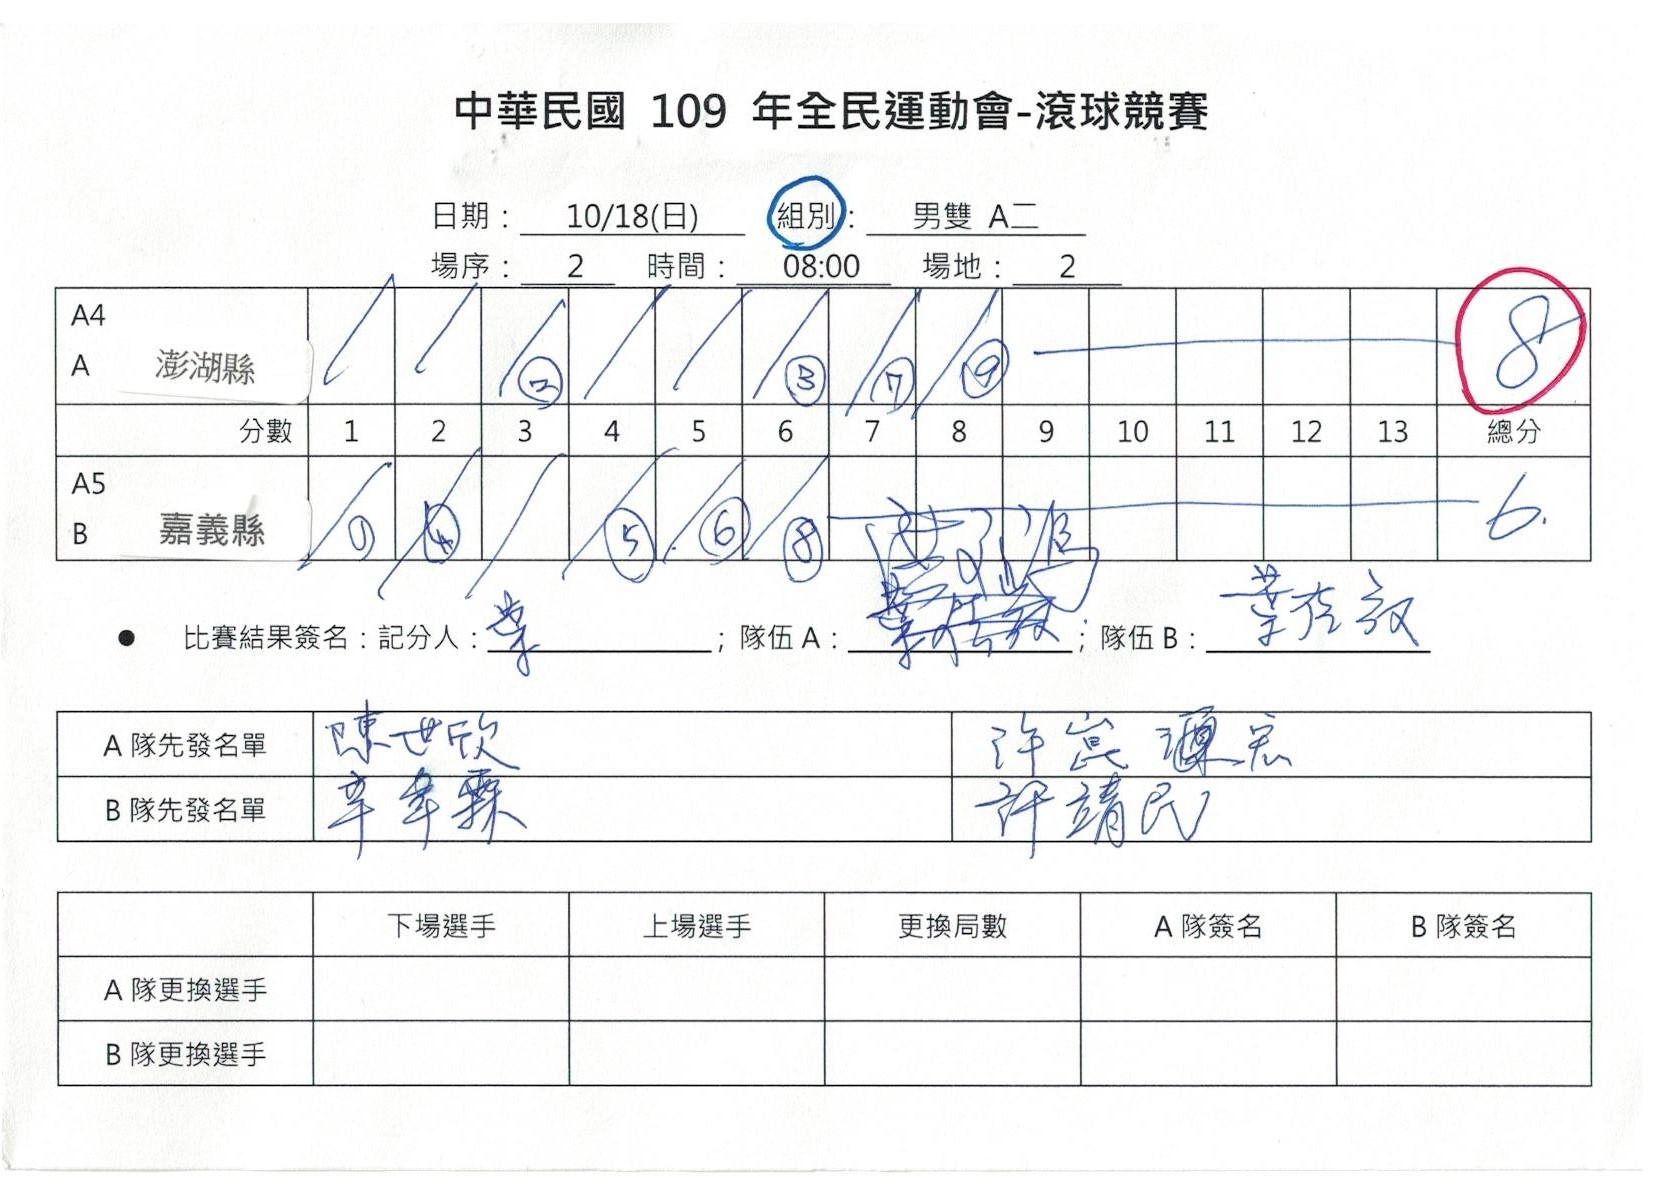 中華民國 109 年全民運動會-滾球競賽
日期： 10/18(日) 組別： 男雙 A二
場序： 2 時間： 08:00 場地： 2
A4
A 澎湖縣 ② ③ ⑦ ⑨ 8
分數 1 2 3 4 5 6 7 8 9 10 11 12 13 總分
A5
B 嘉義縣 ① ④ ⑤ ⑥ ⑧ 6.
● 比賽結果簽名：記分人： ；隊伍 A： ；隊伍 B：
A 隊先發名單 陳世欣 許
B 隊先發名單 辛 霖 許靖民
下場選手 上場選手 更換局數 A 隊簽名 B 隊簽名
A 隊更換選手
B 隊更換選手